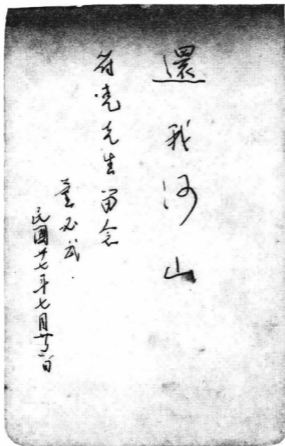 還我河山
先生留念
董必武
民國廿七年七月廿二日